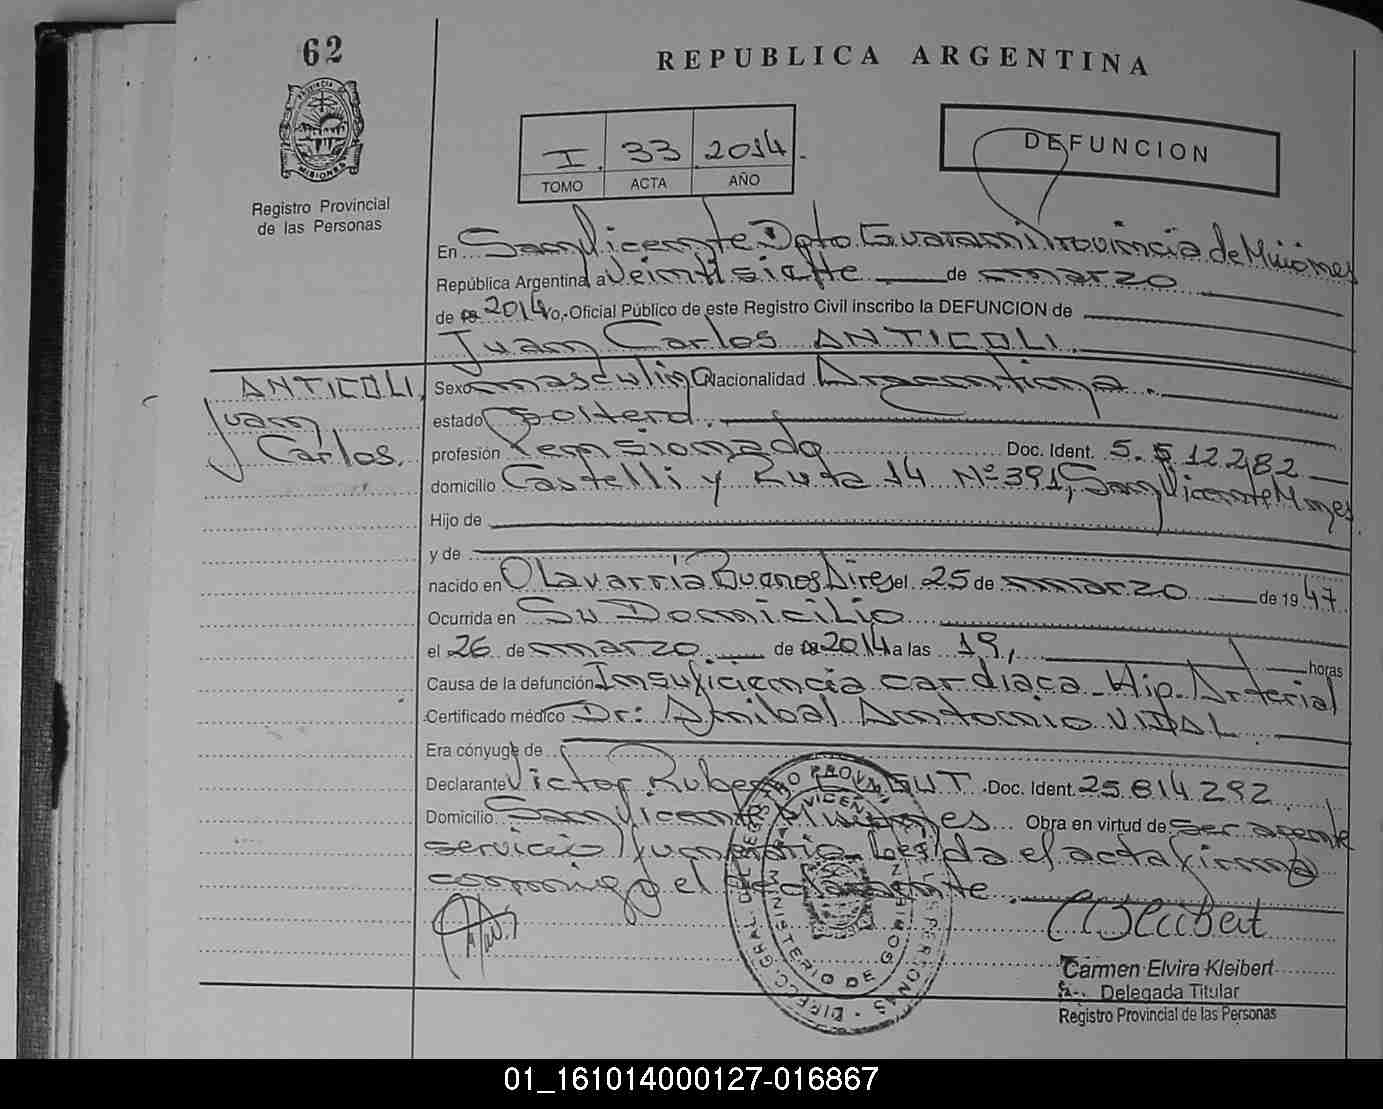 62
REPUBLICA ARGENTINA
PROVINCIA DE
MISIONES
Registro Provincial
de las Personas
I 33 2014
TOMO ACTA AÑO
DEFUNCION
En San Vicente Dpto. Guarani Provincia de Misiones
República Argentina, a Veintisiete de marzo
de 2014 yo, Oficial Público de este Registro Civil inscribo la DEFUNCION de
Juan Carlos ANTICOLI.
ANTICOLI,
Juan
Carlos.
Sexo masculino Nacionalidad Argentina.
estado Soltero.
profesión Pensionado Doc. Ident. 5.512.282
domicilio Castelli y Ruta 14 Nº 391, San Vicente Mnes.
Hijo de
y de
nacido en Olavarria Buenos Aires el 25 de marzo de 1947
Ocurrida en Su Domicilio
el 26 de marzo. de 2014 a las 19, horas
Causa de la defunción Insuficiencia cardiaca - Hip. Arterial
Certificado médico Dr: Anibal Antonio VIDAL.
Era cónyuge de
Declarante Victor Ruben Doc. Ident. 25.814.292
Domicilio San Vicente Misiones Obra en virtud de ser agente
servicio funerario. Leida el acta firma
conmigo el declarante.
Carmen Elvira Kleibert
Delegada Titular
Registro Provincial de las Personas
MINISTERIO DE GOBIERNO
01_161014000127-016867